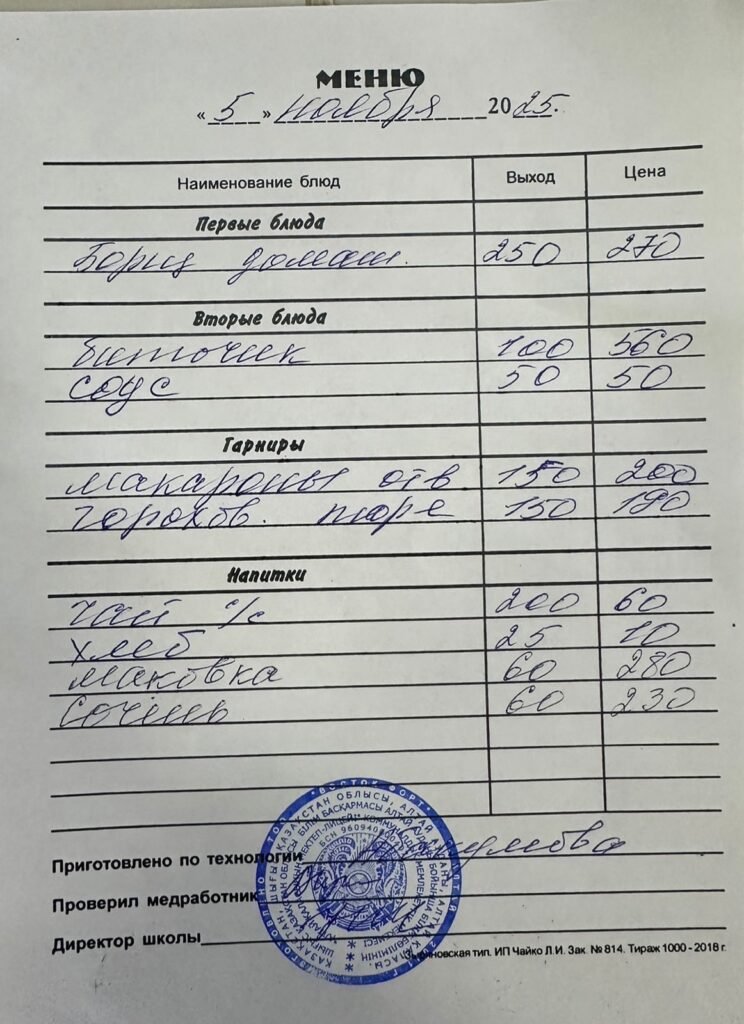 МЕНЮ
« 5 » ноября 2025.
Наименование блюд Выход Цена
Первые блюда
Борщ домаш. 250 270
Вторые блюда
биточик 100 560
соус 50 50
Гарниры
макароны отв 150 200
горохов. пюре 150 190
Напитки
чай с/с 200 60
хлеб 25 10
маковка 60 280
сочень 60 230
Приготовлено по технологии
Проверил медработник
Директор школы
Зыряновская тип. ИП Чайко Л.И. Зак. № 814. Тираж 1000 - 2018 г.
"ВОСТОК ФОРТ"